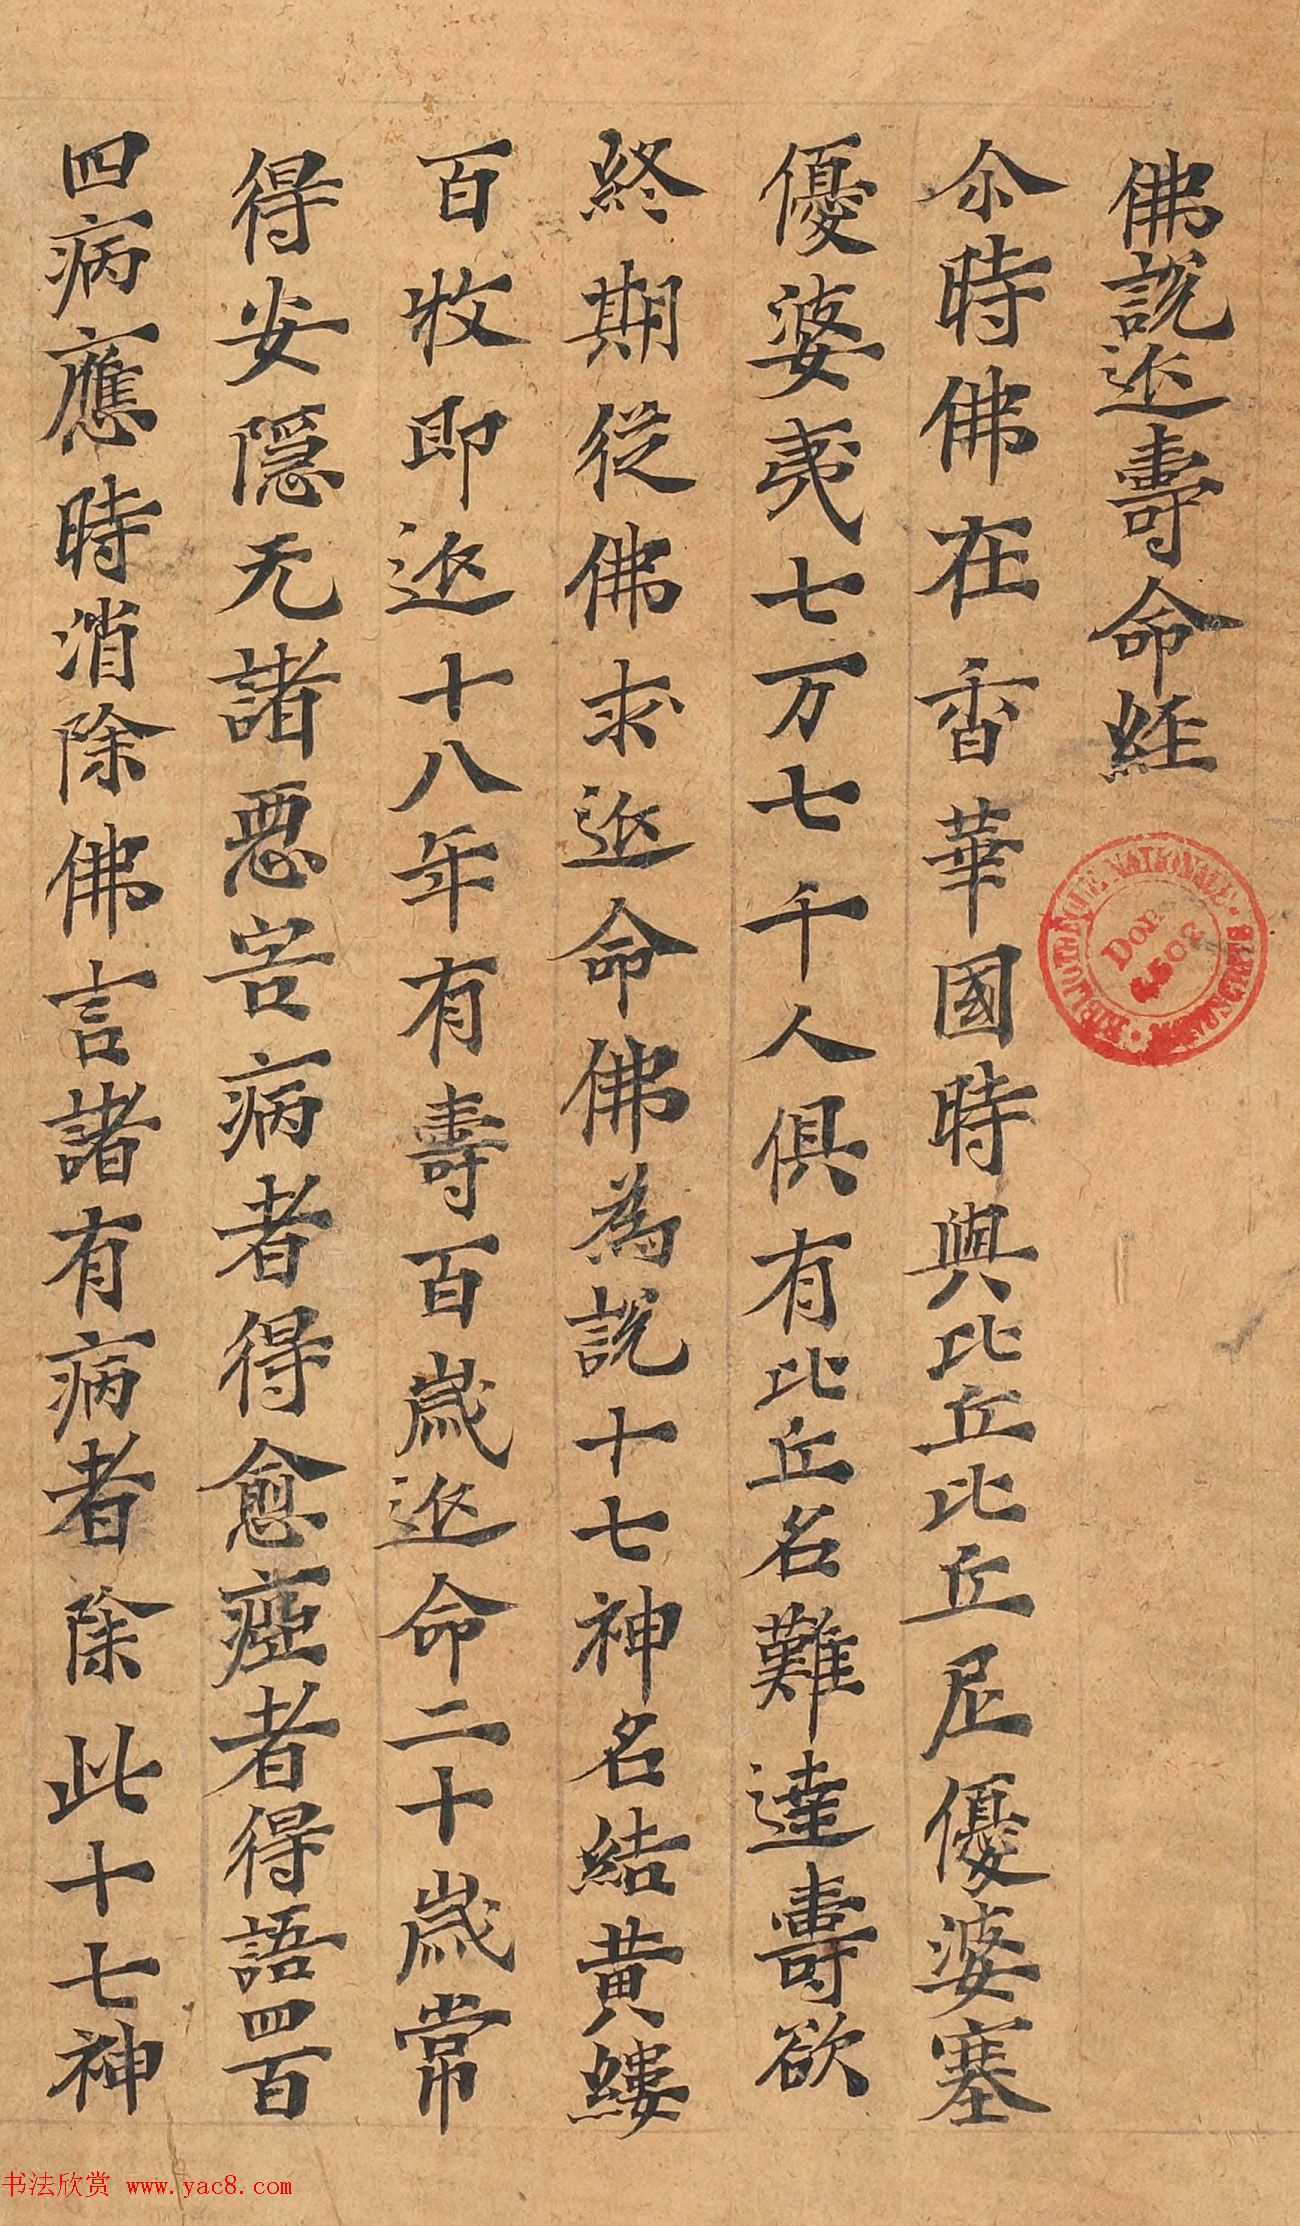 佛說延壽命經
尒時佛在香華國時與比丘比丘尼優婆塞
優婆夷七万七千人俱有比丘名難達壽欲
終期從佛求延命佛為說十七神名結黃縷
百牧即延十八年有壽百歲延命二十歲常
得安隱无諸惡害病者得愈瘂者得語四百
四病應時消除佛言諸有病者除此十七神
BIBLIOTHEQUE NATIONALE · MANUSCRITS ·
Don
4502
书法欣赏 www.yac8.com